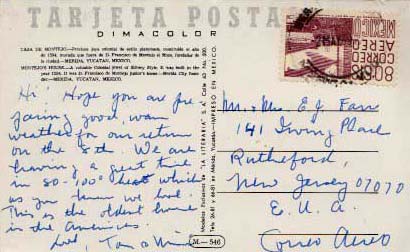 TARJETA POSTAL
DIMACOLOR
CASA DE MONTEJO.—Preciosa joya colonial de estilo plateresco, construida el año de 1549, morada que fuera de D. Francisco de Montejo el Mozo, fundador de la ciudad.—MERIDA, YUCATAN, MEXICO.
MONTEJO'S HOUSE.—A valuable Colonial jewel of Silvery Style. It was built in the year 1549. It was D. Francisco de Montejo junior's home.—Merida City founder.—MERIDA, YUCATAN, MEXICO.
Hi! Hope you are pre-
paring good, warm
weather for our return
on the 8th. We are
having a great time
in 80-100° heat which
as you know we love.
This is the oldest home
in the Americas.
Love, Tom &
Modelos Exclusivos de "LA LITERARIA" S. A. Calle 60 No. 500.
Mérida, Yucatán.—IMPRESO EN MEXICO.
M.—546
80 CTS
CORREO
AEREO
MEXICO
Mr. & Mrs. E J Farr
141 Irving Place
Rutherford,
New Jersey 07070
E. U. A.
Correo Aereo